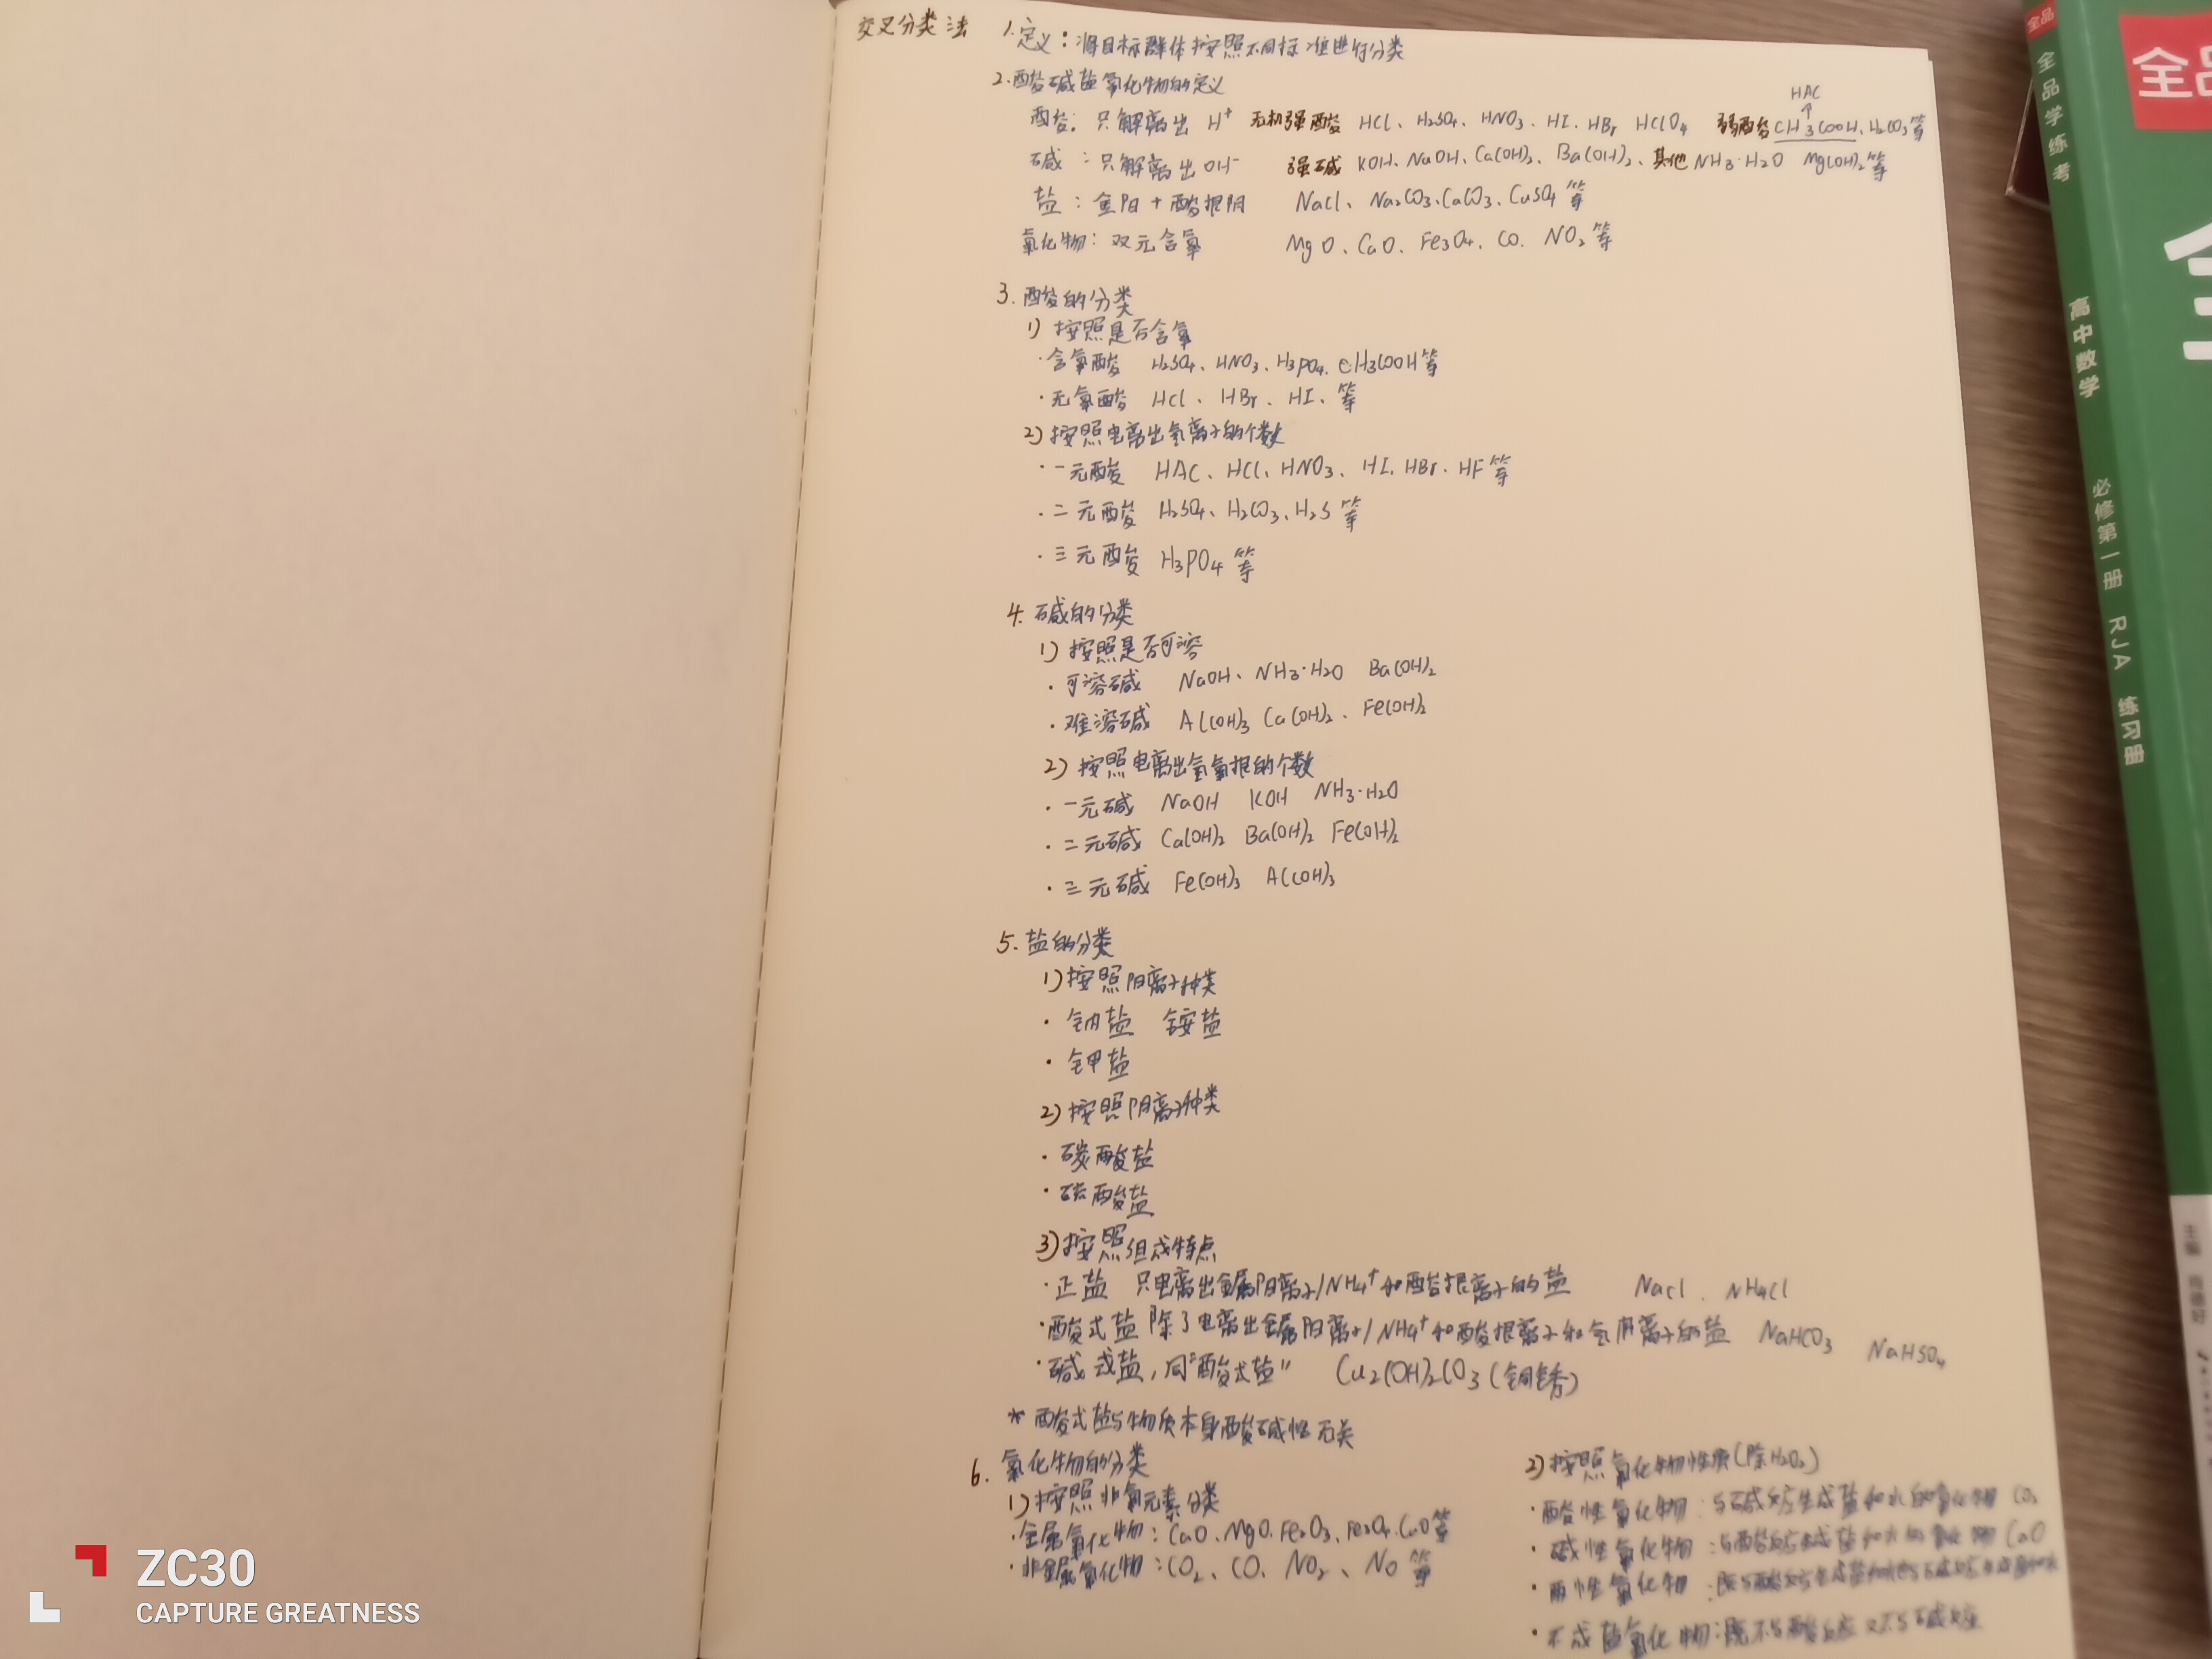 交叉分类法 1.定义：将目标群体按照不同标准进行分类
2.酸碱盐氧化物的定义
HAC
↑
酸：只解离出 H⁺ 无机强酸 HCl、H₂SO₄、HNO₃、HI、HBr HClO₄ 弱酸 CH₃COOH、H₂CO₃等
碱：只解离出OH⁻ 强碱 KOH、NaOH、Ca(OH)₂、Ba(OH)₂、其他 NH₃·H₂O Mg(OH)₂等
盐：金阳+酸根阴 NaCl、Na₂CO₃、CaCO₃、CuSO₄等
氧化物：双元含氧 MgO、CaO、Fe₃O₄、CO、NO₂等
3.酸的分类
1) 按照是否含氧
·含氧酸 H₂SO₄、HNO₃、H₃PO₄、CH₃COOH等
·无氧酸 HCl、HBr、HI、等
2) 按照电离出氢离子的个数
·一元酸 HAC、HCl、HNO₃、HI、HBr、HF等
·二元酸 H₂SO₄、H₂CO₃、H₂S等
·三元酸 H₃PO₄等
4.碱的分类
1) 按照是否可溶
·可溶碱 NaOH、NH₃·H₂O Ba(OH)₂
·难溶碱 Al(OH)₃ Ca(OH)₂、Fe(OH)₂
2) 按照电离出氢氧根的个数
·一元碱 NaOH KOH NH₃·H₂O
·二元碱 Ca(OH)₂ Ba(OH)₂ Fe(OH)₂
·三元碱 Fe(OH)₃ Al(OH)₃
5.盐的分类
1)按照阳离子种类
·钠盐 铵盐
·钾盐
2)按照阴离子种类
·碳酸盐
·硫酸盐
3)按照组成特点
·正盐 只电离出金属阳离子/NH₄⁺和酸根离子的盐 NaCl、NH₄Cl
·酸式盐 除了电离出金属阳离子/NH₄⁺和酸根离子和氢阳离子的盐 NaHCO₃ NaHSO₄
·碱式盐，同"酸式盐" Cu₂(OH)₂CO₃(铜锈)
*酸式盐与物质本身酸碱性无关
6.氧化物的分类
1)按照非氧元素分类
·金属氧化物：CaO、MgO、Fe₂O₃、Fe₃O₄、CuO等
·非金属氧化物：CO₂、CO、NO₂、NO等
2)按照氧化物性质(除H₂O₂)
·酸性氧化物：与碱反应生成盐和水的氧化物 CO₂
·碱性氧化物：与酸反应生成盐和水的氧化物 CaO
·两性氧化物：既与酸反应生成盐和水
·不成盐氧化物：既不与酸反应又不与碱反应
全品
全品学练考
高中数学
必修第一册 RJA 练习册
主编
全品
ZC30
CAPTURE GREATNESS